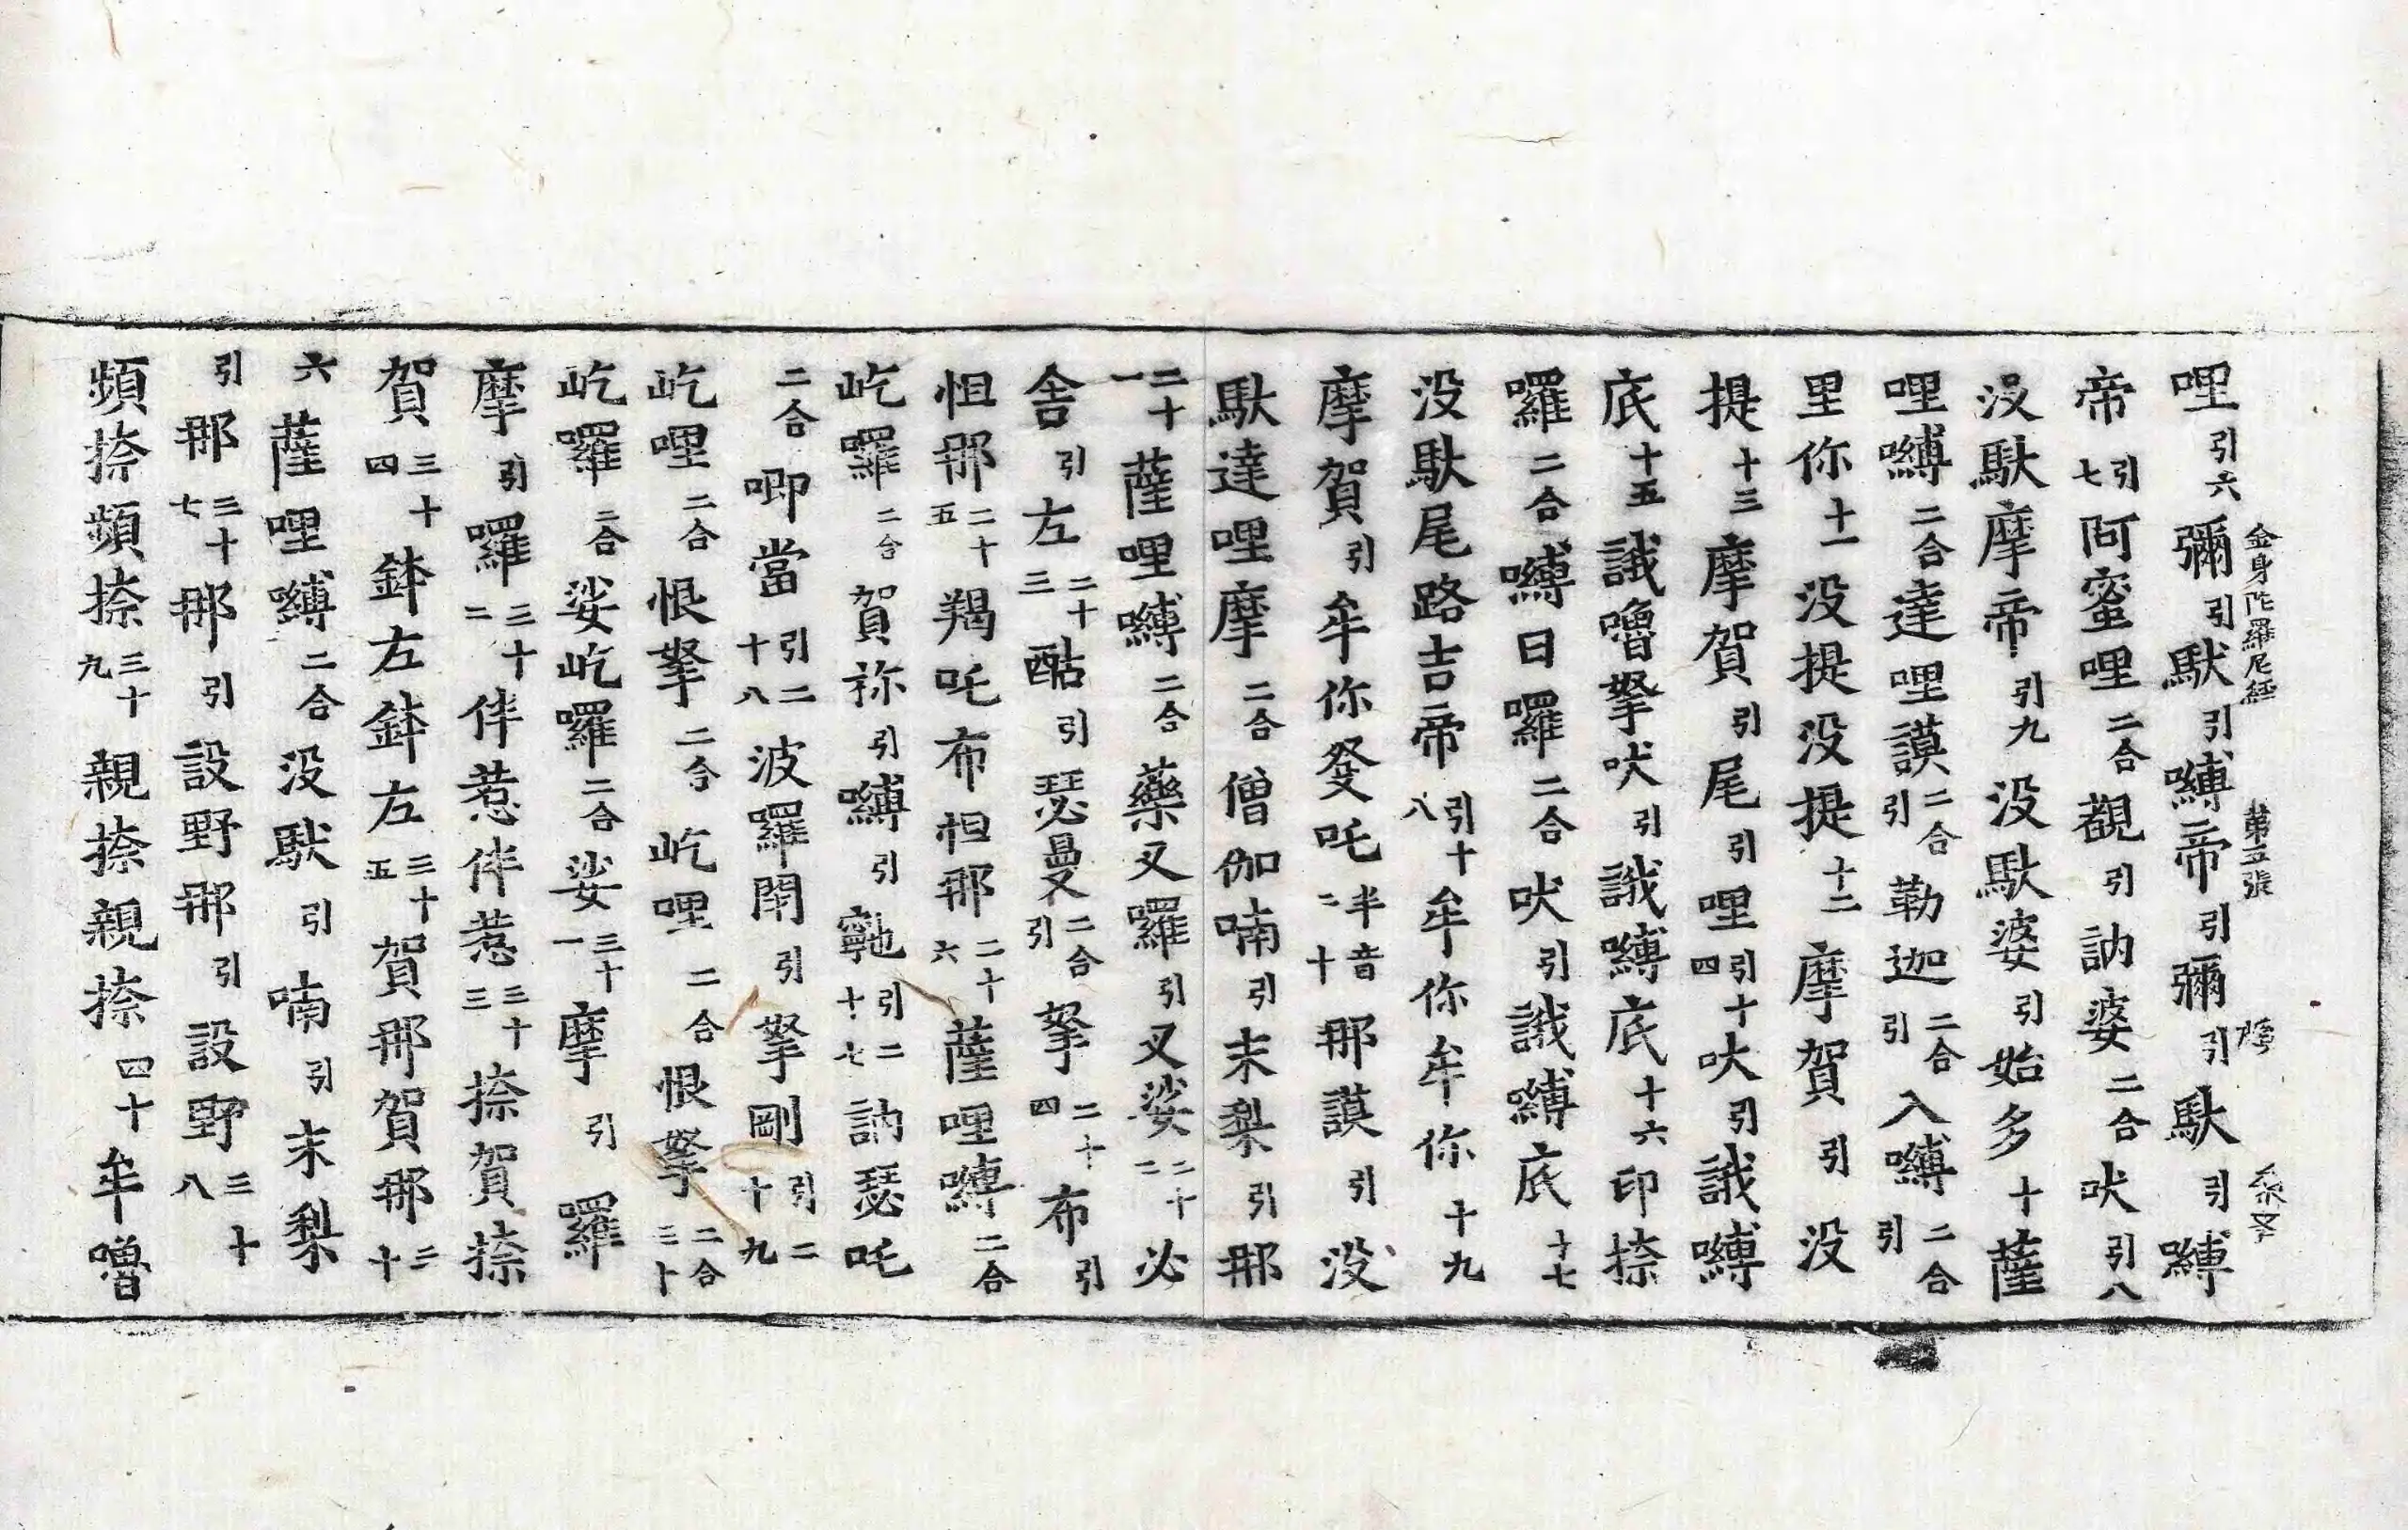 金身陀羅尼經 第五張
哩引六彌引馱引嚩帝引彌引馱引嚩
帝引七阿蜜哩二合覩引訥婆二合吠引八
没馱摩帝引九没馱婆引始多十薩
哩嚩二合達哩謨二合引勒迦二合引入嚩二合引
里你十一没提没提十二摩賀引没
提十三摩賀引尾引哩引十四吠引誐嚩
底十五誐嚕拏吠引誐嚩底十六印捺
囉二合嚩日囉二合吠引誐嚩底十七
没馱尾路吉帝引十八牟你牟你十九
摩賀引牟你發吒半音二十那謨引没
馱達哩摩二合僧伽喃引末梨引那
二十一薩哩嚩二合藥叉羅引叉娑二十二必
舍引左二十三酤引瑟㬅二合引拏二十四布引
怛那二十五羯吒布怛那二十六薩哩嚩二合
屹囉二合賀祢引嚩引引二十七訥瑟吒
二合唧當引二十八波羅閉引拏剛引二十九
屹哩二合恨拏二合屹哩二合恨拏二合三十
屹囉二合娑屹囉二合娑三十一摩引羅
摩引羅三十二伴惹伴惹三十三捺賀捺
賀三十四鉢左鉢左三十五賀那賀那三十
六薩哩嚩二合没馱引喃引末梨
引那三十七那引設野那引設野三十八
頻捺頻捺三十九親捺親捺四十牟嚕